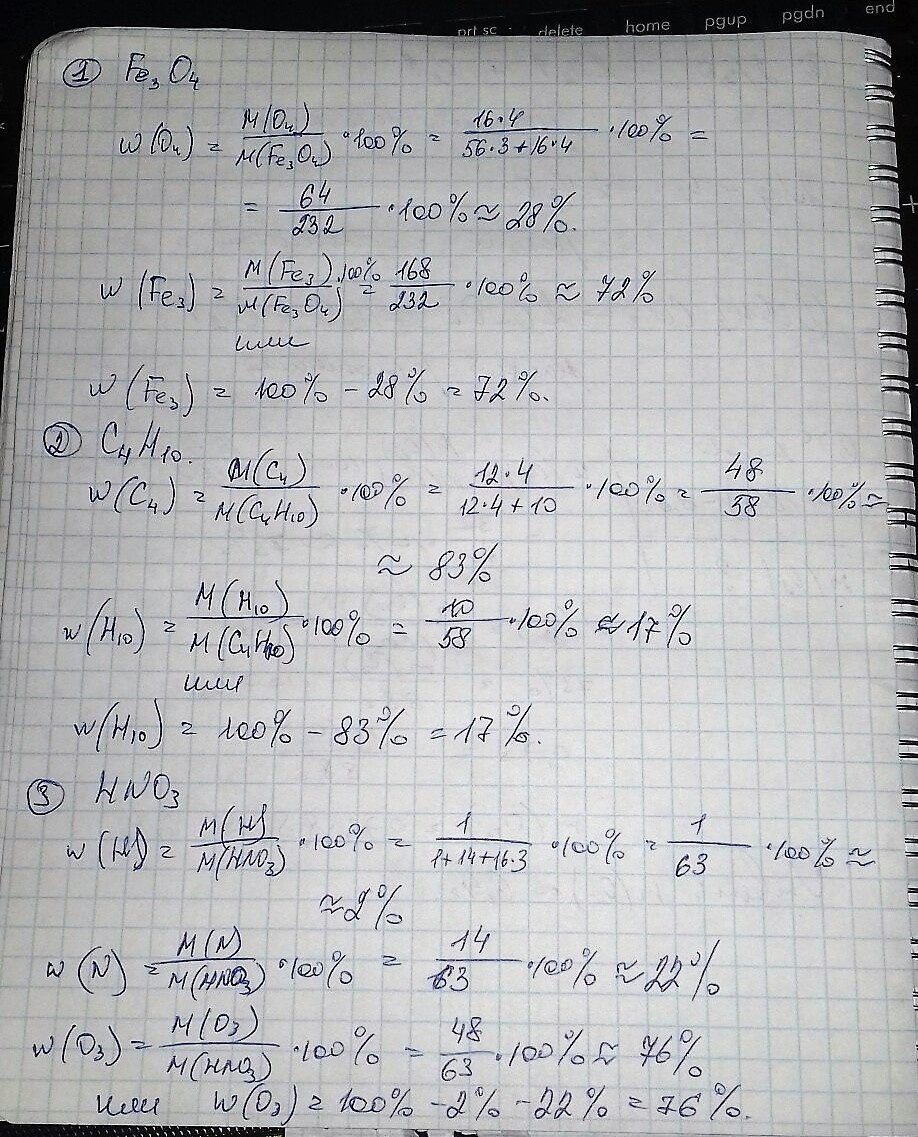 prt sc delete home pgup pgdn end
① Fe₃O₄
w(O₄) = M(O₄)/M(Fe₃O₄) · 100% = 16·4/56·3+16·4 · 100% =
= 64/232 · 100% ≈ 28%.
w(Fe₃) = M(Fe₃)/M(Fe₃O₄) · 100% = 168/232 · 100% ≈ 72%
или
w(Fe₃) = 100% - 28% = 72%.
② C₄H₁₀.
w(C₄) = M(C₄)/M(C₄H₁₀) · 100% = 12·4/12·4+10 · 100% = 48/58 · 100% ≈
≈ 83%
w(H₁₀) = M(H₁₀)/M(C₄H₁₀) · 100% = 10/58 · 100% ≈ 17%
или
w(H₁₀) = 100% - 83% = 17%.
③ HNO₃
w(H) = M(H)/M(HNO₃) · 100% = 1/1+14+16·3 · 100% = 1/63 · 100% ≈
≈ 2%
w(N) = M(N)/M(HNO₃) · 100% = 14/63 · 100% ≈ 22%
w(O₃) = M(O₃)/M(HNO₃) · 100% = 48/63 · 100% ≈ 76%
или w(O₃) = 100% - 2% - 22% = 76%.